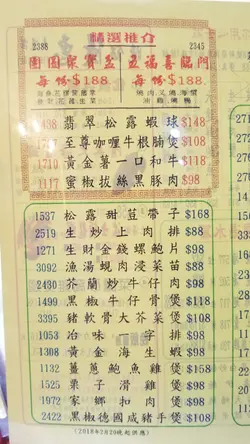 精選推介
2388 2345
團團聚賽盃 五福喜臨門
每份$188 每份$188
1438 翡翠松露蝦球 $148
至尊咖喱牛根腩煲 $108
1710 黃金薯一口和牛 $118
1117 蜜椒拔絲黑豚肉 $98
1537 松露甜荳帶子 $168
2519 生炒上肉排 $88
1271 生財金錢螺鮑片 $98
3092 漁湯蜆肉浸菜苗 $88
2430 芥蘭炒牛仔肉 $98
1499 黑椒牛仔骨煲 $118
3395 豬軟骨大芥菜煲 $98
1053 冶味一字排 $98
1308 黃金海生蝦 $98
1132 薑蔥鮑魚雞煲 $98
1525 栗子滑雞煲 $98
1972 家鄉扣肉煲 $98
2422 黑椒德國咸豬手煲 $108